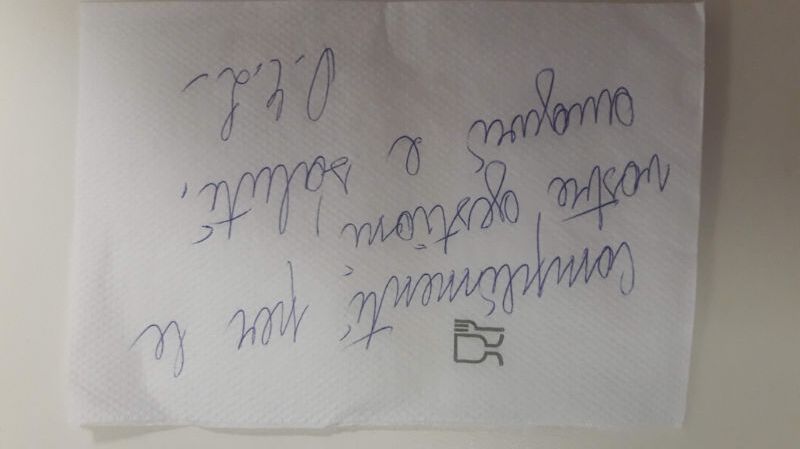 Complimenti per le
vostre gestioni,
auguri e saluti,